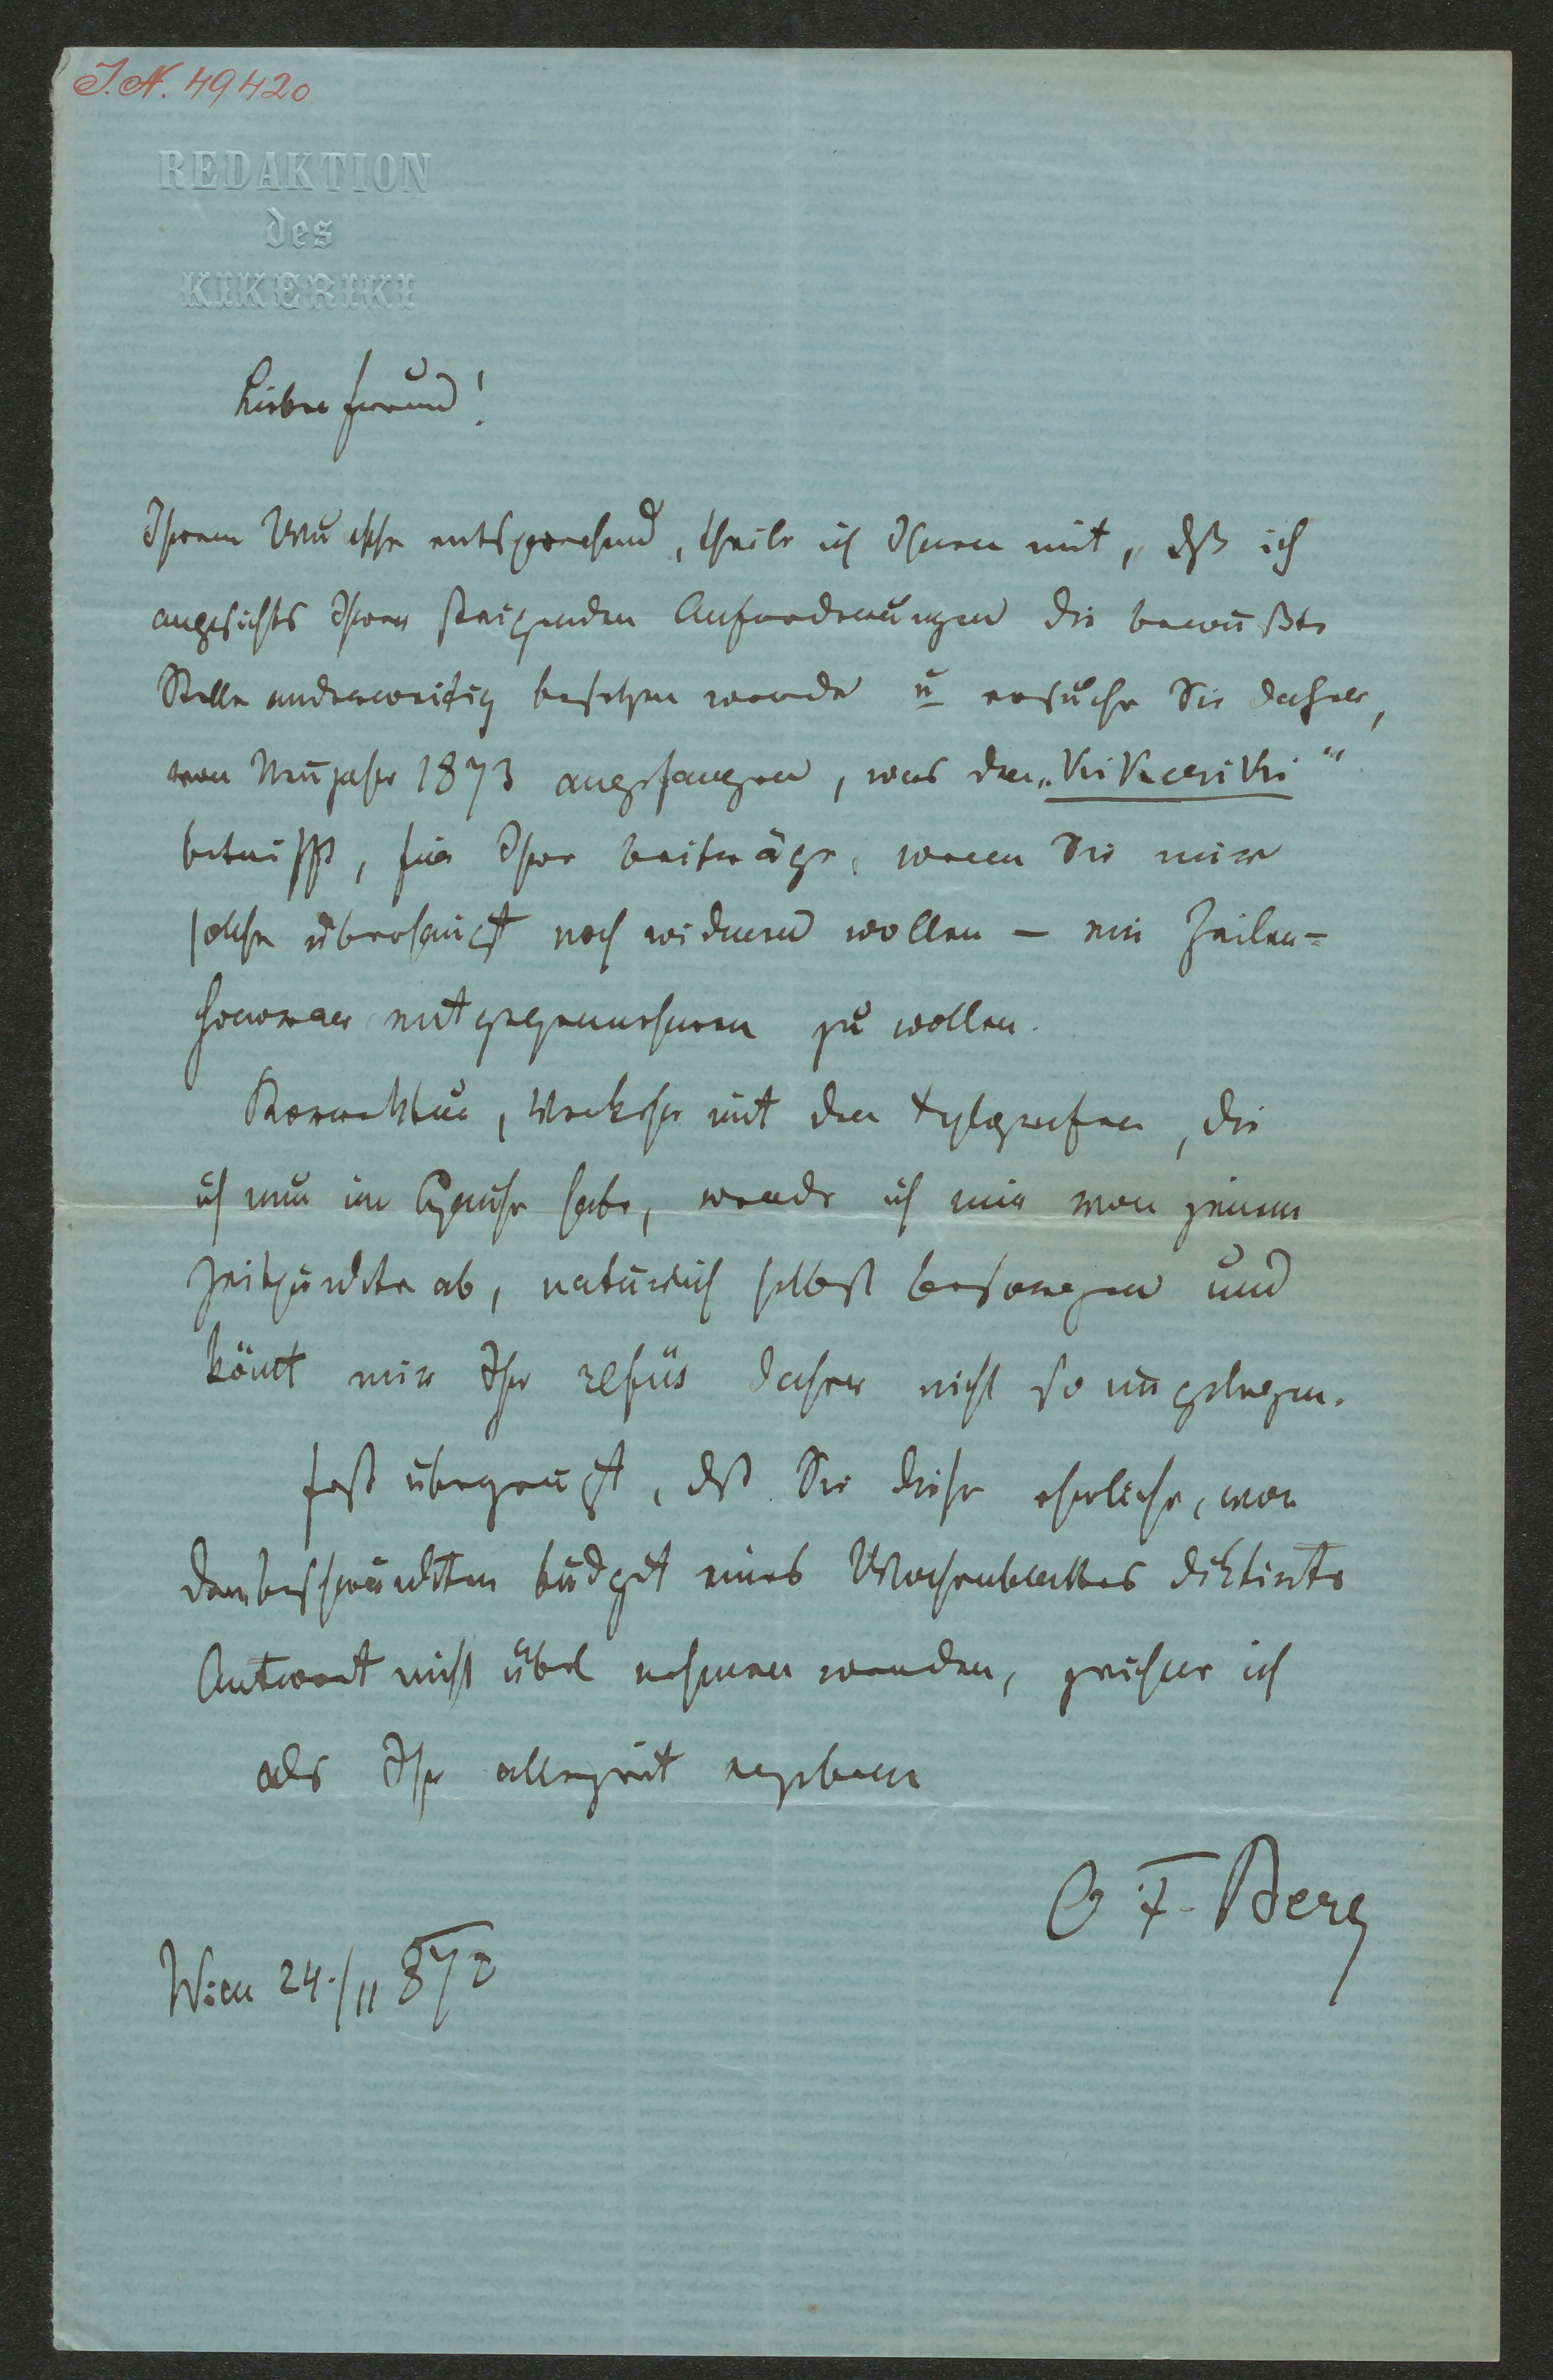 I.N. 49420
REDAKTION
des
KIKERIKI
Lieber Freund!
Ihrem Wunsche entsprechend, theile ich Ihnen mit, dß ich
angesichts Ihrer steigenden Anforderungen die bewußte
Stelle anderweitig besetzen werde u ersuche Sie daher,
von Neujahr 1873 angefangen, was den „Kikeriki“
betrifft, für Ihre Beiträge, wenn Sie mir
solche überhaupt noch widmen wollen – ein Zeilen=
honorar entgegennehmen zu wollen.
Korrektur, Verkehr mit den Xylografen, die
ich nun im Hause habe, werde ich mir von jenem
Zeitpunkte ab, natürlich selbst besorgen und
kömt mir Ihr refüs daher nicht so ungelegen.
Fest überzeugt, dß Sie diese ehrliche, von
dem beschränkten Budget eines Wochenblattes diktirte
Antwort nicht übel nehmen werden, zeichne ich
als Ihr allezeit ergebener
O F. Berg
Wien 24./11 872